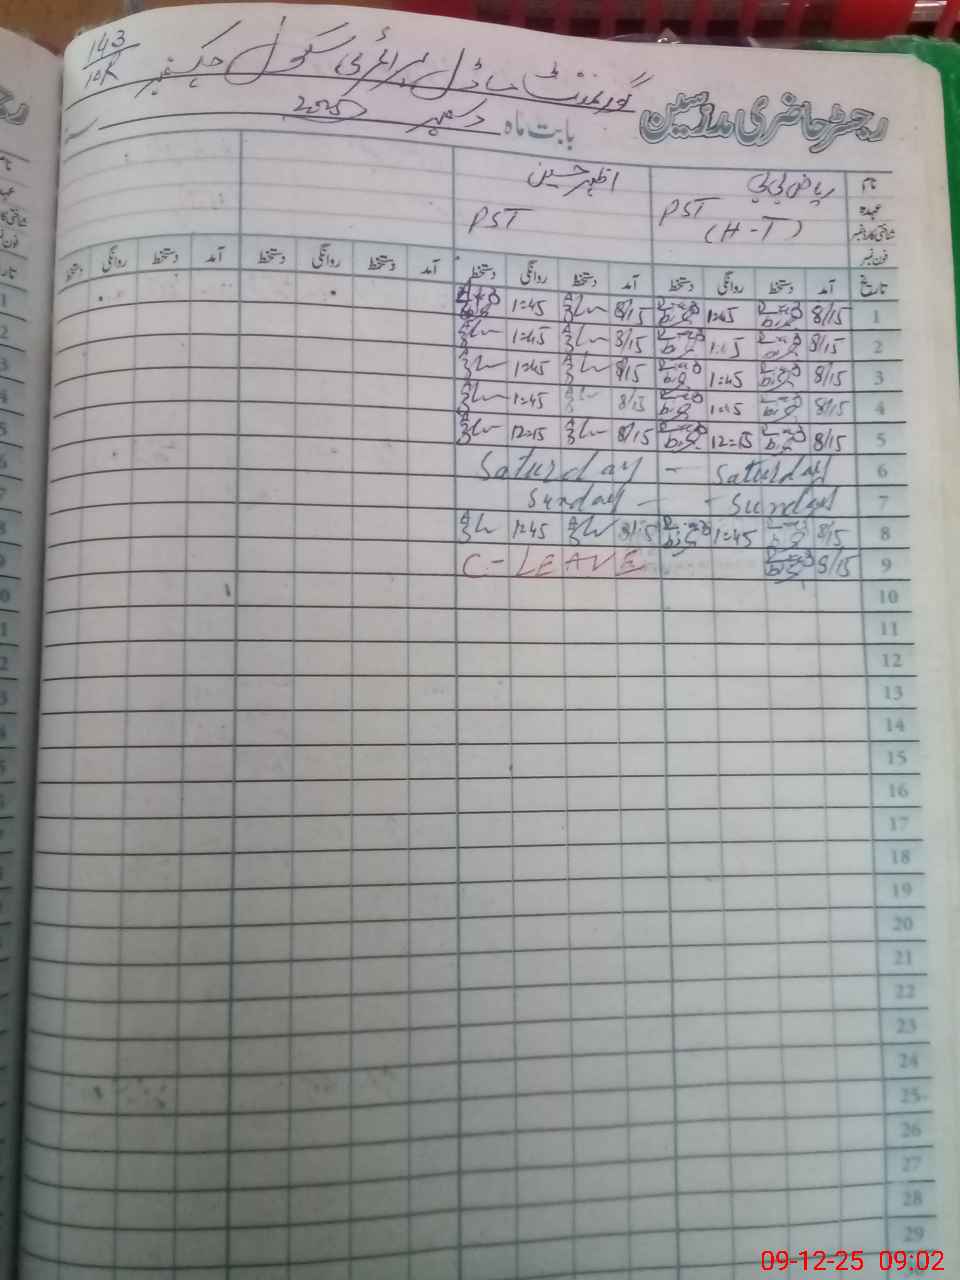 143
10R
گورنمنٹ ماڈل پرائمری سکول چک نمبر
رجسٹر حاضری مدرسین
بابت ماہ دسمبر 2025
نام ریاض بی بی اظہر حسین
عہدہ PST PST
شناختی کارڈ نمبر (H-T)
فون نمبر
تاریخ آمد دستخط روانگی دستخط آمد دستخط روانگی دستخط آمد دستخط روانگی دستخط آمد دستخط روانگی دستخط
1 8/15 1:45 8/15 1:45
2 8/15 1:45 8/15 1:45
3 8/15 1:45 8/15 1:45
4 8/15 1:45 8/15 1:45
5 8/15 12=15 8/15 12=15
6 Saturday - Saturday
7 Sunday - - Sunday
8 8/15 1=45 8/15 1:45
9 8/15 C-LEAVE
10
11
12
13
14
15
16
17
18
19
20
21
22
23
24
25
26
27
28
29
09-12-25 09:02